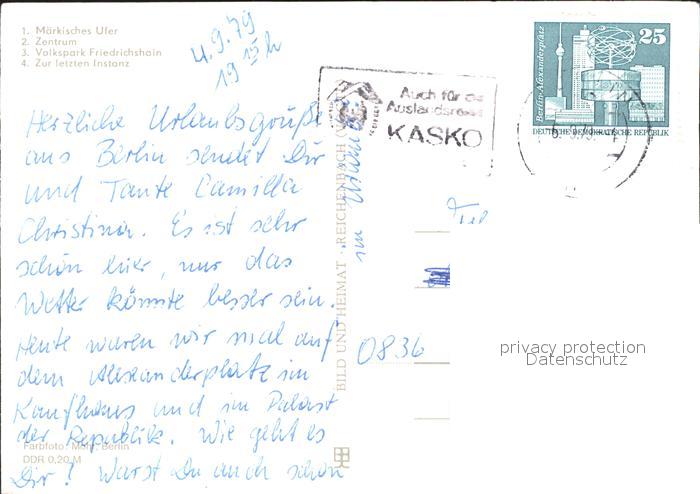 1. Märkisches Ufer
2. Zentrum
3. Volkspark Friedrichshain
4. Zur letzten Instanz
4.9.79
19 15 h
Herzliche Urlaubsgrüße
aus Berlin sendet Dir
und Tante Camilla
Christina. Es ist sehr
schön hier, nur das
Wetter könnte besser sein.
Heute waren wir mal auf
dem Alexanderplatz im
Kaufhaus und im Palast
der Republik. Wie geht es
Dir? Warst Du auch schon
im Urlaub?
Farbfoto: Mohr, Berlin
DDR 0,20 M
BILD UND HEIMAT · REICHENBACH
Auch für
Auslandsreise
KASKO
Berlin-Alexanderplatz
25
DEUTSCHE DEMOKRATISCHE REPUBLIK
0836
privacy protection
Datenschutz